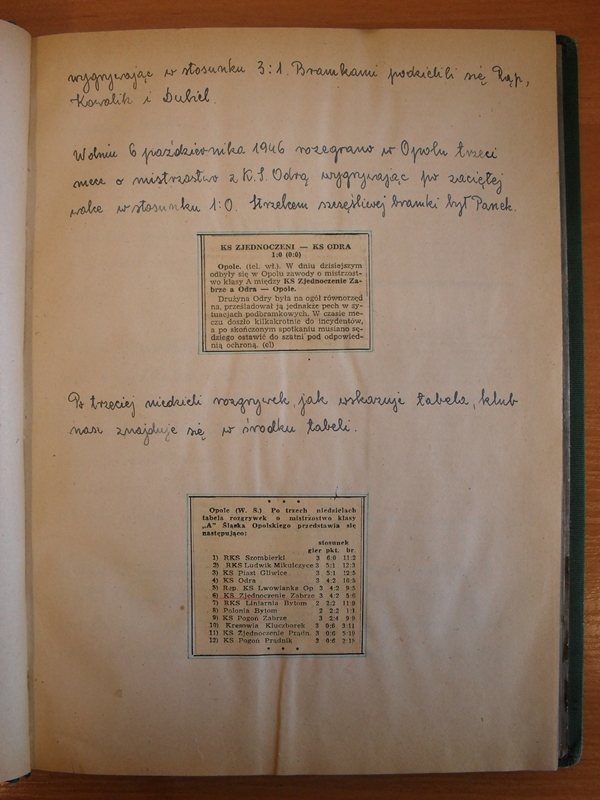 wygrywając w stosunku 3:1. Bramkami podzielili się Rąp,
Kowalik i Dubiel.
W dniu 6 października 1946 rozegrano w Opolu trzeci
mecz o mistrzostwo z K.S. Odrą wygrywając po zaciętej
walce w stosunku 1:0. Strzelcem szczęśliwej bramki był Panek.
KS ZJEDNOCZENI — KS ODRA
1:0 (0:0)
Opole. (tel. wł.). W dniu dzisiejszym
odbyły się w Opolu zawody o mistrzost-
wo klasy A między KS Zjednoczenie Za-
brze a Odra — Opole.
Drużyna Odry była na ogół równorzęd
na, prześladował ją jednakże pech w sy-
tuacjach podbramkowych. W czasie me-
czu doszło kilkakrotnie do incydentów,
a po skończonym spotkaniu musiano sę-
dziego ostawić do szatni pod odpowied-
nią ochroną. (el)
Po trzeciej niedzieli rozgrywek, jak wskazuje tabela, klub
nasz znajduje się w środku tabeli.
Opole (W. S.) Po trzech niedzielach
tabela rozgrywek o mistrzostwo klasy
„A" Śląska Opolskiego przedstawia się
następująco:
stosunek
gier pkt. br.
1) RKS Szombierki 3 6:0 11:2
2) RKS Ludwik Mikulczyce 3 5:1 12:3
3) KS Piast Gliwice 3 5:1 12:5
4) KS Odra 3 4:2 10:5
5) Rep. KS Lwowianka Op. 3 4:2 9:5
6) KS Zjednoczenie Zabrze 3 4:2 5:6
7) RKS Liniarnia Bytom 2 2:2 11:9
8) Polonia Bytom 2 2:2 1:1
9) KS Pogoń Zabrze 3 2:4 9:9
10) Kresowia Kluczborek 3 0:6 3:11
11) KS Zjednoczenie Prudn. 3 0:6 5:19
12) KS Pogoń Prudnik 3 0:6 2:15